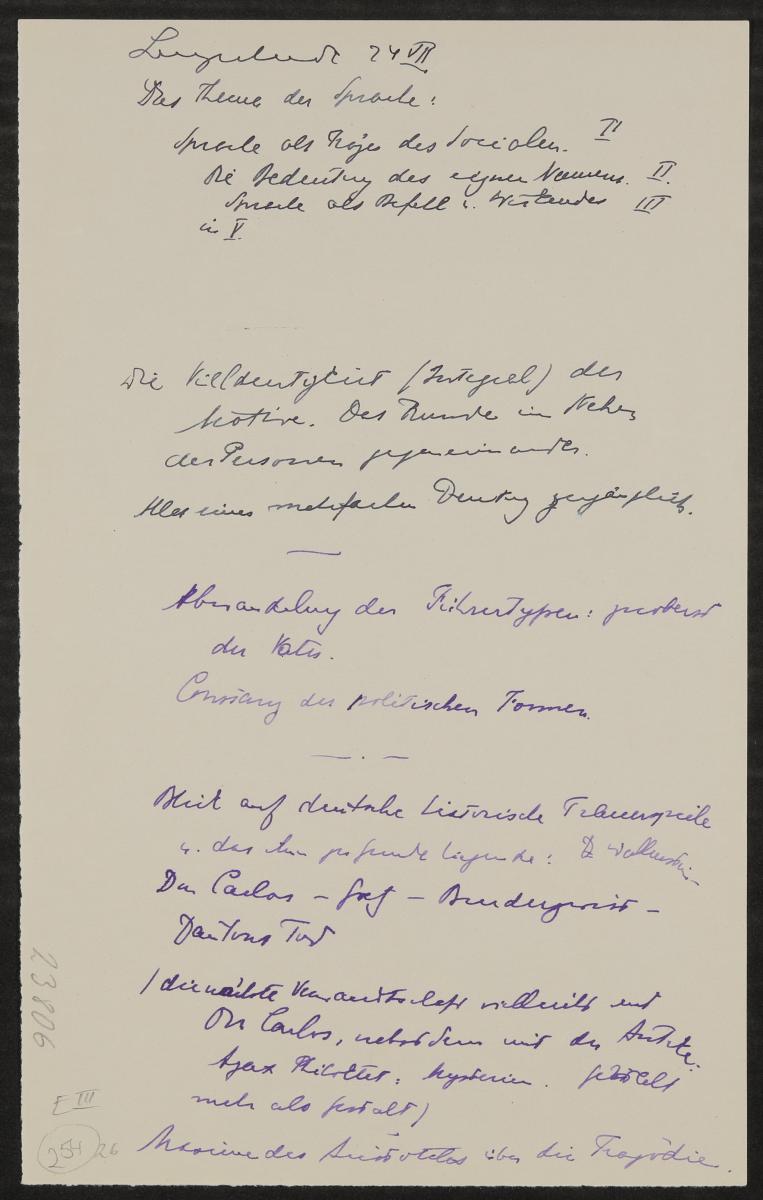 24 VII
Das Thema der Sprache:
Sprache als Träger des Socialen. II
Die Bedeutung des eignen Namens. II.
Sprache als Befehl u. Wirkendes III
in V.
Die Vieldeutigkeit (Integral) der
Motive. Das Runde im
der Personen gegeneinander.
Alles einer mehrfachen Deutung zugänglich.
Abwandlung des Führertypen:
der Vater.
der politischen Formen.
Blick auf deutsche historische Trauerspiele
u. das ihm zu Grunde liegende: D Wallenstein –
Don Carlos – – –
Dantons Tod
(die nächste Verwandtschaft vielleicht mit
Don Carlos, nebstdem mit der Antike:
Ajax Philoktet: Mysterien.
mehr als Gestalt)
Maxime des Aristoteles über die Tragödie.
23806
E III
254 26